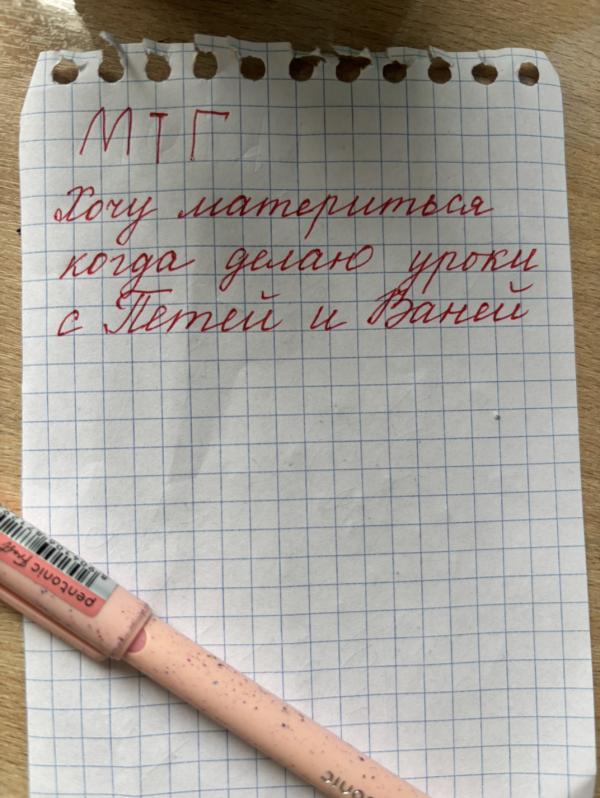 МТГ
Хочу материться
когда делаю уроки
с Петей и Ваней
pentonic